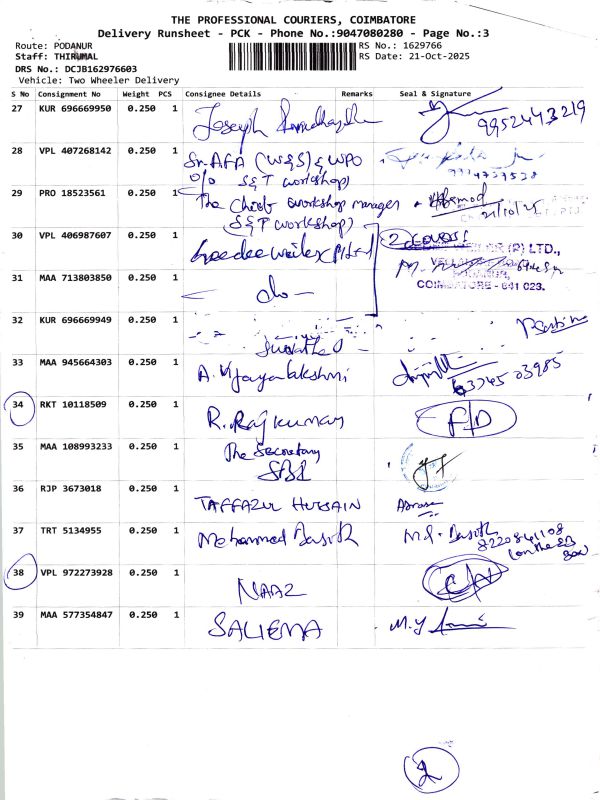 THE PROFESSIONAL COURIERS, COIMBATORE
Delivery Runsheet - PCK - Phone No.:9047080280 - Page No.:3
Route: PODANUR RS No.: 1629766
Staff: THIRUMAL RS Date: 21-Oct-2025
DRS No.: DCJB162976603
Vehicle: Two Wheeler Delivery
S No Consignment No Weight PCS Consignee Details Remarks Seal & Signature
27 KUR 696669950 0.250 1 Joseph 9952443219
28 VPL 407268142 0.250 1 Sr. AFA (W&S) & WPO
S&T workshop)
29 PRO 18523561 0.250 1 The Chief workshop manager 21/10/25
(S&T workshop)
30 VPL 406987607 0.250 1 2 COVERS
(P) LTD.,
31 MAA 713803850 0.250 1 do COIMBATORE - 641 023.
32 KUR 696669949 0.250 1
33 MAA 945664303 0.250 1 A. Vijayalakshmi 63745 03985
34 RKT 10118509 0.250 1 R. Rajkumar F/D
35 MAA 108993233 0.250 1 The Secretary
SBI
36 RJP 3673018 0.250 1 TAFFAZUL HUSSAIN
37 TRT 5134955 0.250 1 Mohammed Dasith M.D. Dasith
8220841108
38 VPL 972273928 0.250 1 NAAZ
39 MAA 577354847 0.250 1 SALIEMA M.Y
2